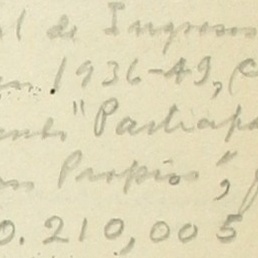 l de Ingresos
1936-49, (
" Participa
Propios",
0.210,005